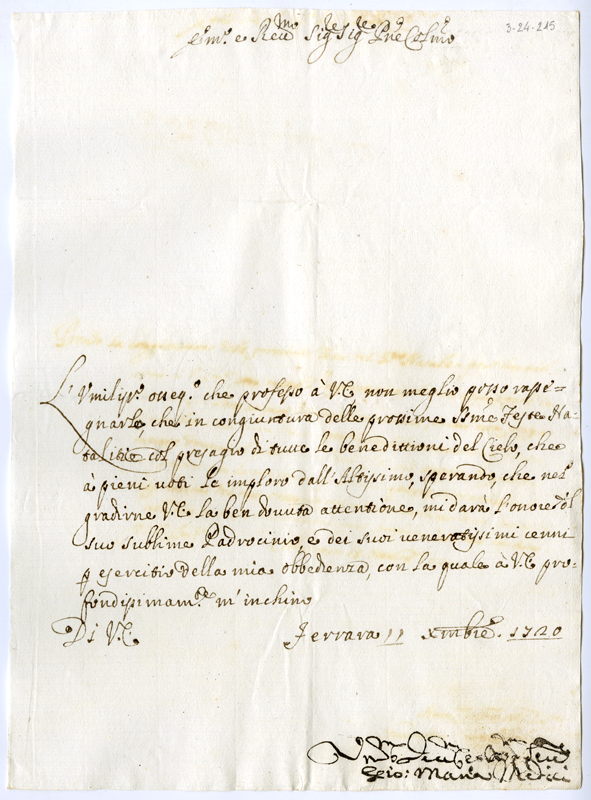 3-24-215
Em.º e Reu.mo Sig.re Sig.re P̃ne Col.mo
L'Vmiliss.º osseq.º che professo à V.E. non meglio posso rasse=
gnarle, che in congiuntura delle prossime Ss.me Feste Na=
talitie col presagio di tutte le benedittioni del Cielo, che
à pieni uoti Le imploro dall'Altissimo, sperando, che nel
gradirne V.E. la ben douuta attentione, mi darà l'onore del
suo sublime Padrocinio, e dei suoi veneratissimi cenni
p esercitio della mia obbedenza, con la quale à V.E. pro=
fondissimam.te m'inchino
Di V.E.
Ferrara 11 Xmbre. 1720
Gio: Maria Medici